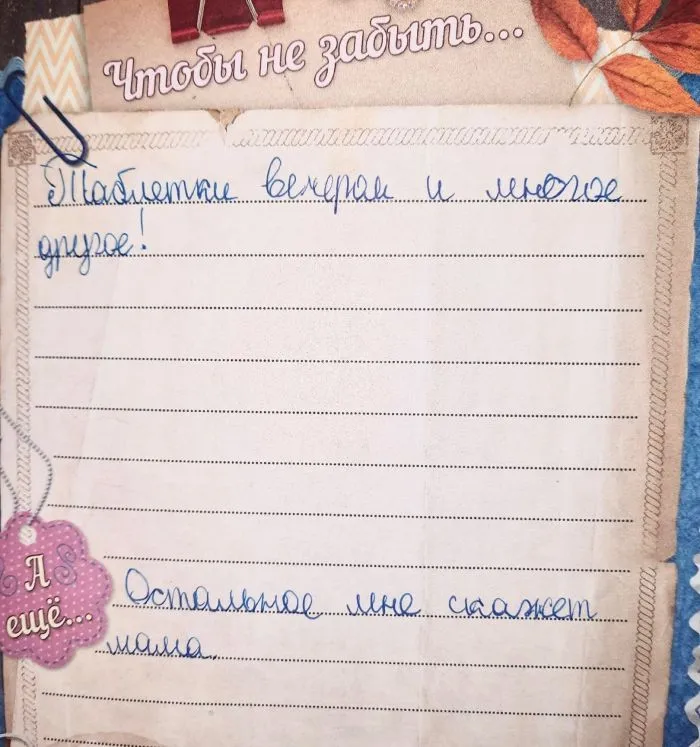 Чтобы не забыть...
Таблетки вечером и многое
другое!
А
ещё...
Остальное мне скажет
мама.